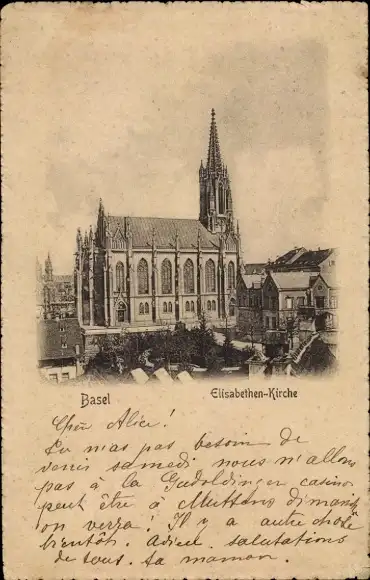 Basel
Elisabethen-Kirche
Alice!
Tu n'as pas besoin de
venir samedi nous n'allons
pas à la casino
peut être à Muttenz dimanche
on verra! Il y a autre chose
bientôt. Adieu salutations
de tous. ta maman.